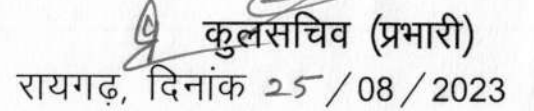 कुलसचिव (प्रभारी)
रायगढ़, दिनांक 25/08/2023